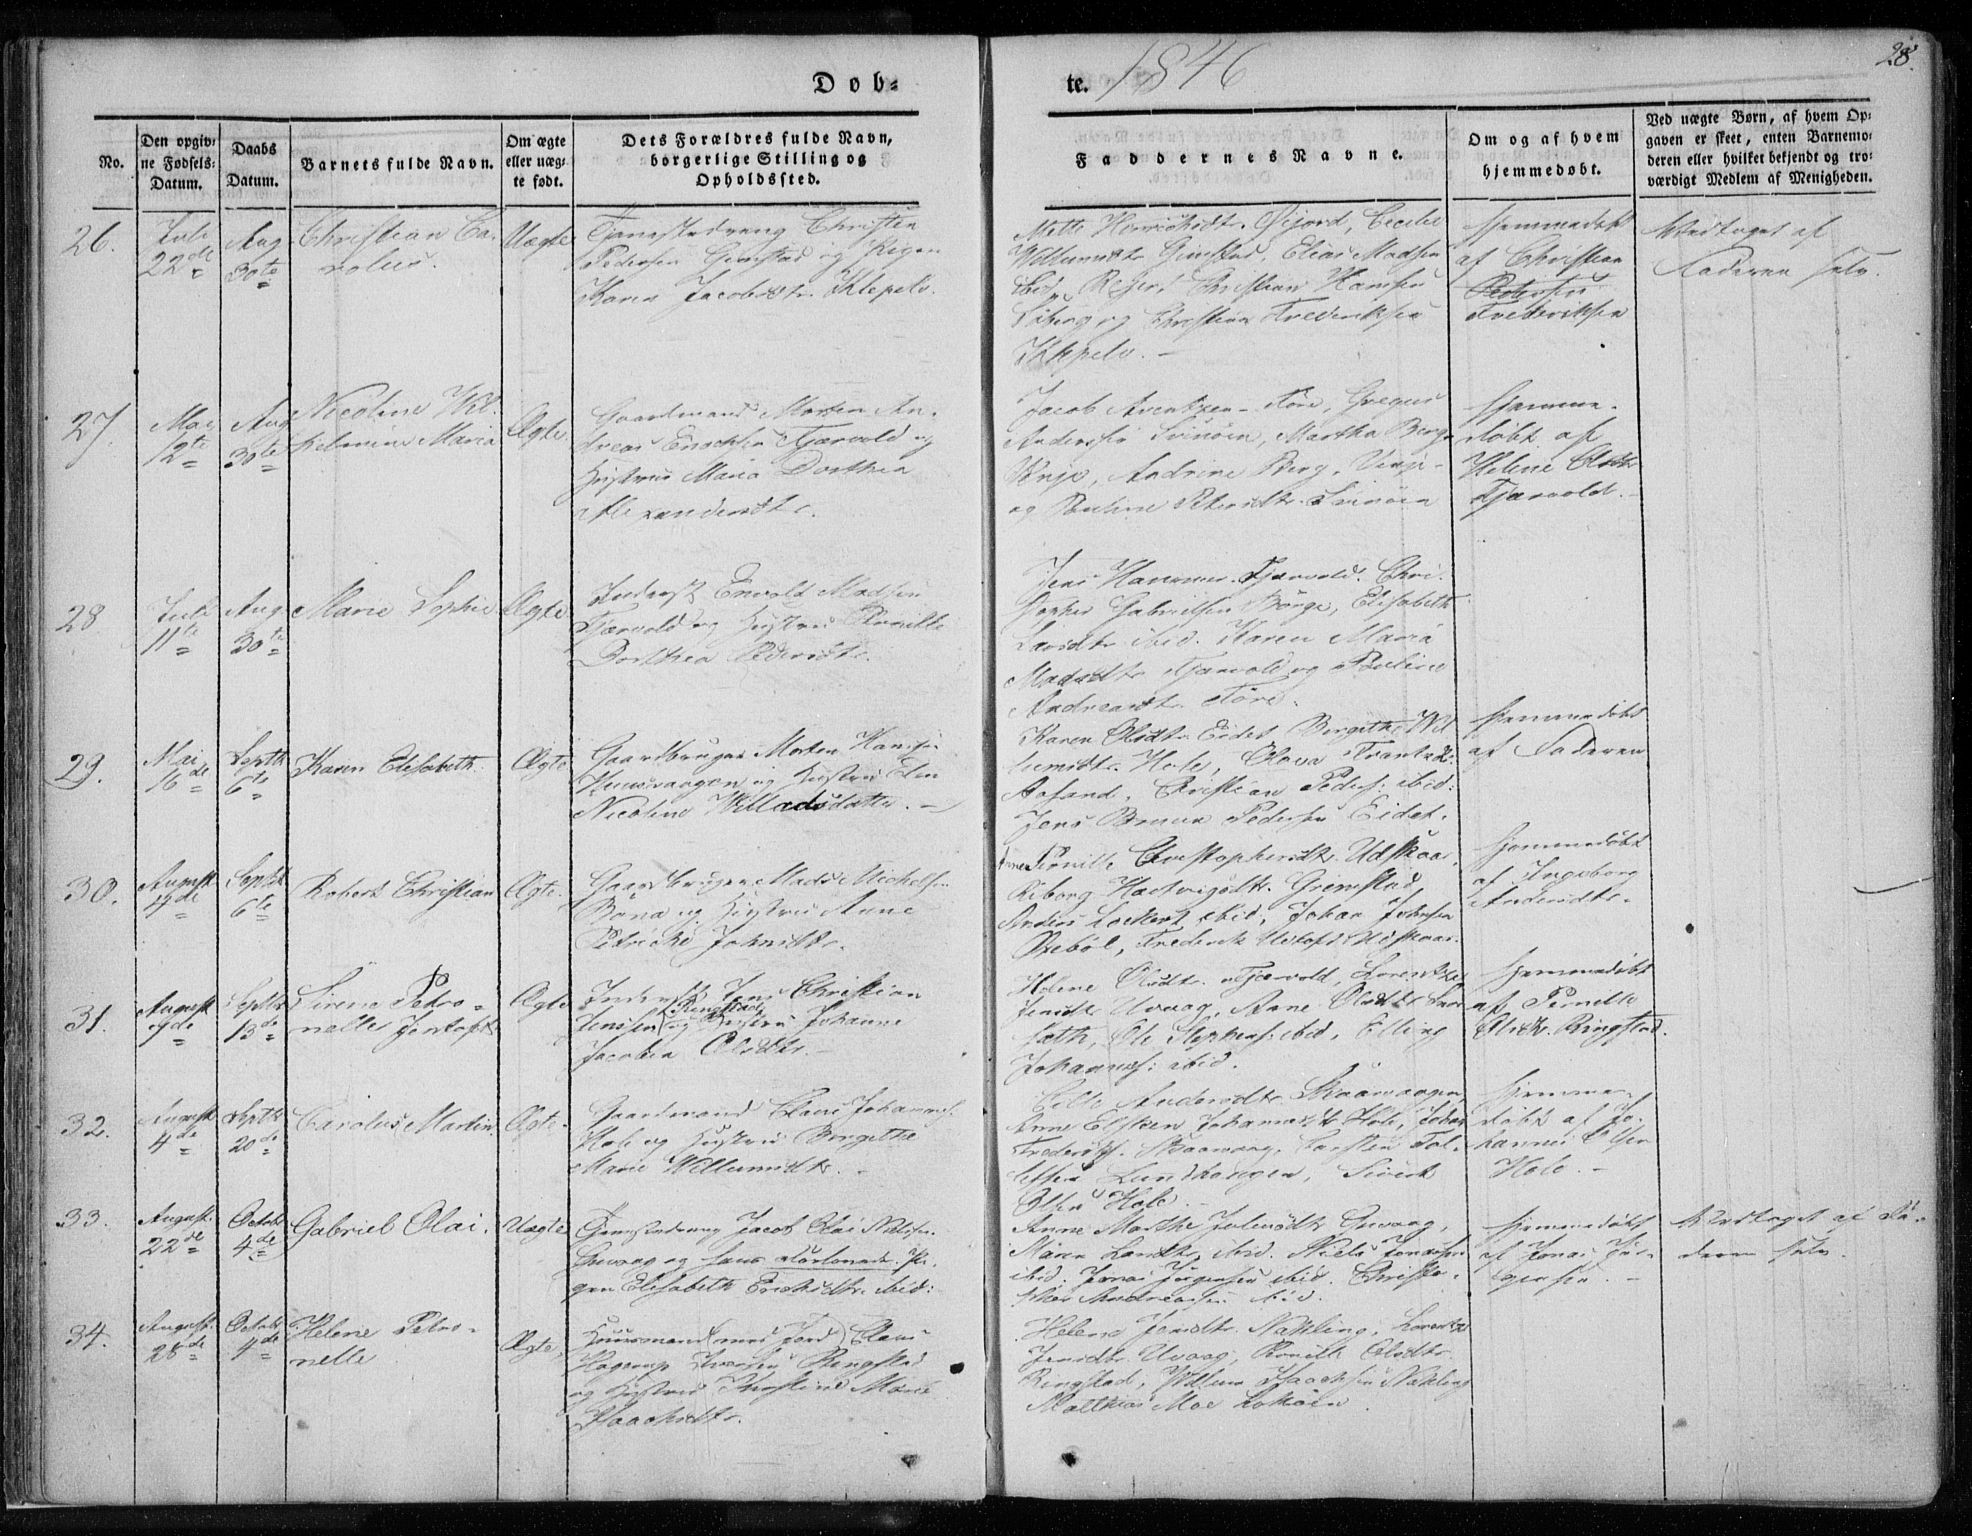 28.
Døb-
te. 1846
No.
Den opgiv-
ne Fødsels-
Datum.
Daabs
Datum.
Barnets fulde Navn.
Om ægte
eller uæg-
te født.
Dets Forældres fulde Navn,
borgerlige Stilling og
Opholdssted.
Faddernes Navne.
Om og af hvem
hjemmedøbt.
Ved uægte Børn, af hvem Op-
gaven er skeet, enten Barnemo-
deren eller hvilket bekjendt og tro-
værdigt Medlem af Menigheden.
26.
Juli
22de
Aug
30te
Christian Ca-
rolus.
Uægte
Tjenestedreng Christen
Pedersen Grimstad og Pigen
Karen Jacobsdtr. Klepelv.
Mette Henrichsdtr. Øijord, Cecilie
Willumsdtr. Grimstad, Elias Madsen
ibid., Christian Hansen
og Christian Frederiksen
Klepelv. -
Hjemmedøbt
af Christian
Pedersen
Frederiksen
Modtaget af
Faderen selv.
27.
Mai
12te
Aug
30te
Nicoline Wil-
helmine Maria
Ægte
Gaardmand Morten An-
dreas Enochsen Fjærvold og
Hustrue Maria Dorthea
Alexandersdtr.
Jacob Arentzen Føre, Gregus
Andersen Svinøen, Martha Berg
Vinje, Andrine Berg, Vinje
og Pauline Petersdtr. Svinøen
Hjemme-
døbt af
Helene Olsdtr
Fjærvold.
28
Juli
11te
Aug
30te
Marie Sophie
Ægte
Inderst Enevold Madsen
Fjærvold og Hustrue Pernille
Dorthea Pedersdtr.
Jens Hammer Fjærvold. Chri-
stopher Gabrielsen Børge, Elisabeth
Larsdtr. ibid. Karen Maria
Madsdtr. Fjærvold og Pauline
Andreasdtr. Føre.
29.
Mai
16de
Septbr
6te
Karen Elisabeth.
Ægte
Gaardbruger Morten Hansen
og Hustrue Elen
Nicoline Willadsdatter. -
Karen Olsdtr. Eidet Bergithe Wil-
lumsdtr. Hole, Olava Frantzd.
Aasand, Christian Peders: ibid:
Jens Bruun Pedersen Eidet.
Hjemmedøbt
af Faderen
30.
August
4de
Septbr
6te
Robert Christian
Ægte.
Gaardbruger Mads Michelsen
Bøna og Hustrue Anne
Petricke Johnsdtr.
Anne Pernille Christophersdtr. Udskaar,
Riborg Hartvigsdtr. Grimstad,
Anders Lockert ibid, Johan Johnsen
Stebøl, Frederik Udskaar.
Hjemmedøbt
af Ingeborg
Andersdtr.
31.
August
9de
Septbr
13de
Sirene Petro-
nelle Jentoft
Ægte
Inderst Jens Christian
Jensen Ringstad og Hustrue Johanne
Jacobea Olsdtr. -
Helene Olsdtr. Fjærvold, Lorentze
Jensdtr. Uvaag, Anne Olsdtr.
sæth, Ole Stephens: ibid, Elling
Johannes: ibid.
Hjemmedøbt
af Pernille
Olsdtr. Ringstad.
32.
August
4de
Septbr
20de
Carolus Martin.
Ægte.
Gaardmand Claus Johannes:
Hole og Hustrue Bergitthe
Marie Willumsdtr. -
Andersdtr. Skaarvaagen,
Anne Elisken Johannesdtr Hole, Johan
Frederiks. Skaarvaag, Carsten Tol-
lefsen Sivert
Olsen Hole.
Hjemme-
døbt af Jo-
hannes Olsen
Hole. -
33.
August
22de
Octobr
4de
Gabriel Olai.
Uægte
Tjenestedreng Jacob Olai Nielsen
Guvaag og hans Pi-
gen Elisabeth Erichsdtr. ibid:
Anne Marthe Guvaag,
Maren Larsdtr. ibid. Niels Jonassen
ibid. Jonas Jørgensen ibid. Christo-
pher Andreassen ibid.
Hjemmedøbt
af Jonas Jør-
gensen. -
Modtaget af Fa-
deren selv.
34.
August
28de
Octobr
4de
Helene Petro-
nelle
Ægte
Huusmand (med Jord) Claus
Hagerup Iversen Ringstad
og Hustrue Christine Marie
Isaachsdtr.
Helene Jensdtr. Nøkling, Lorentze
Jensdtr. Uvaag, Pernille Olsdtr.
Ringstad, Willum Isaachsen Nøkling
Matthias Moe Lokøen.